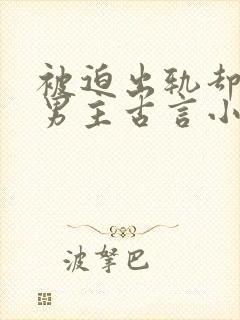 被迫出轨却
男主古言小
波拏巴